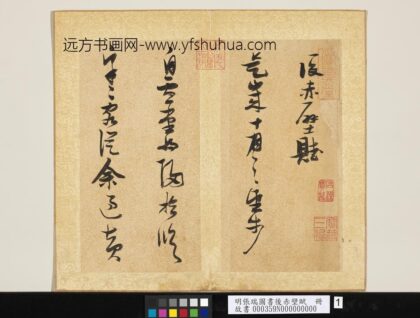 远方书画网-www.yfshuhua.com
後赤壁賦
是歲十月之望步
自雪堂將歸於臨
皋二客從余過黃
明張瑞圖書後赤壁賦 冊
故書 000359N000000000
1